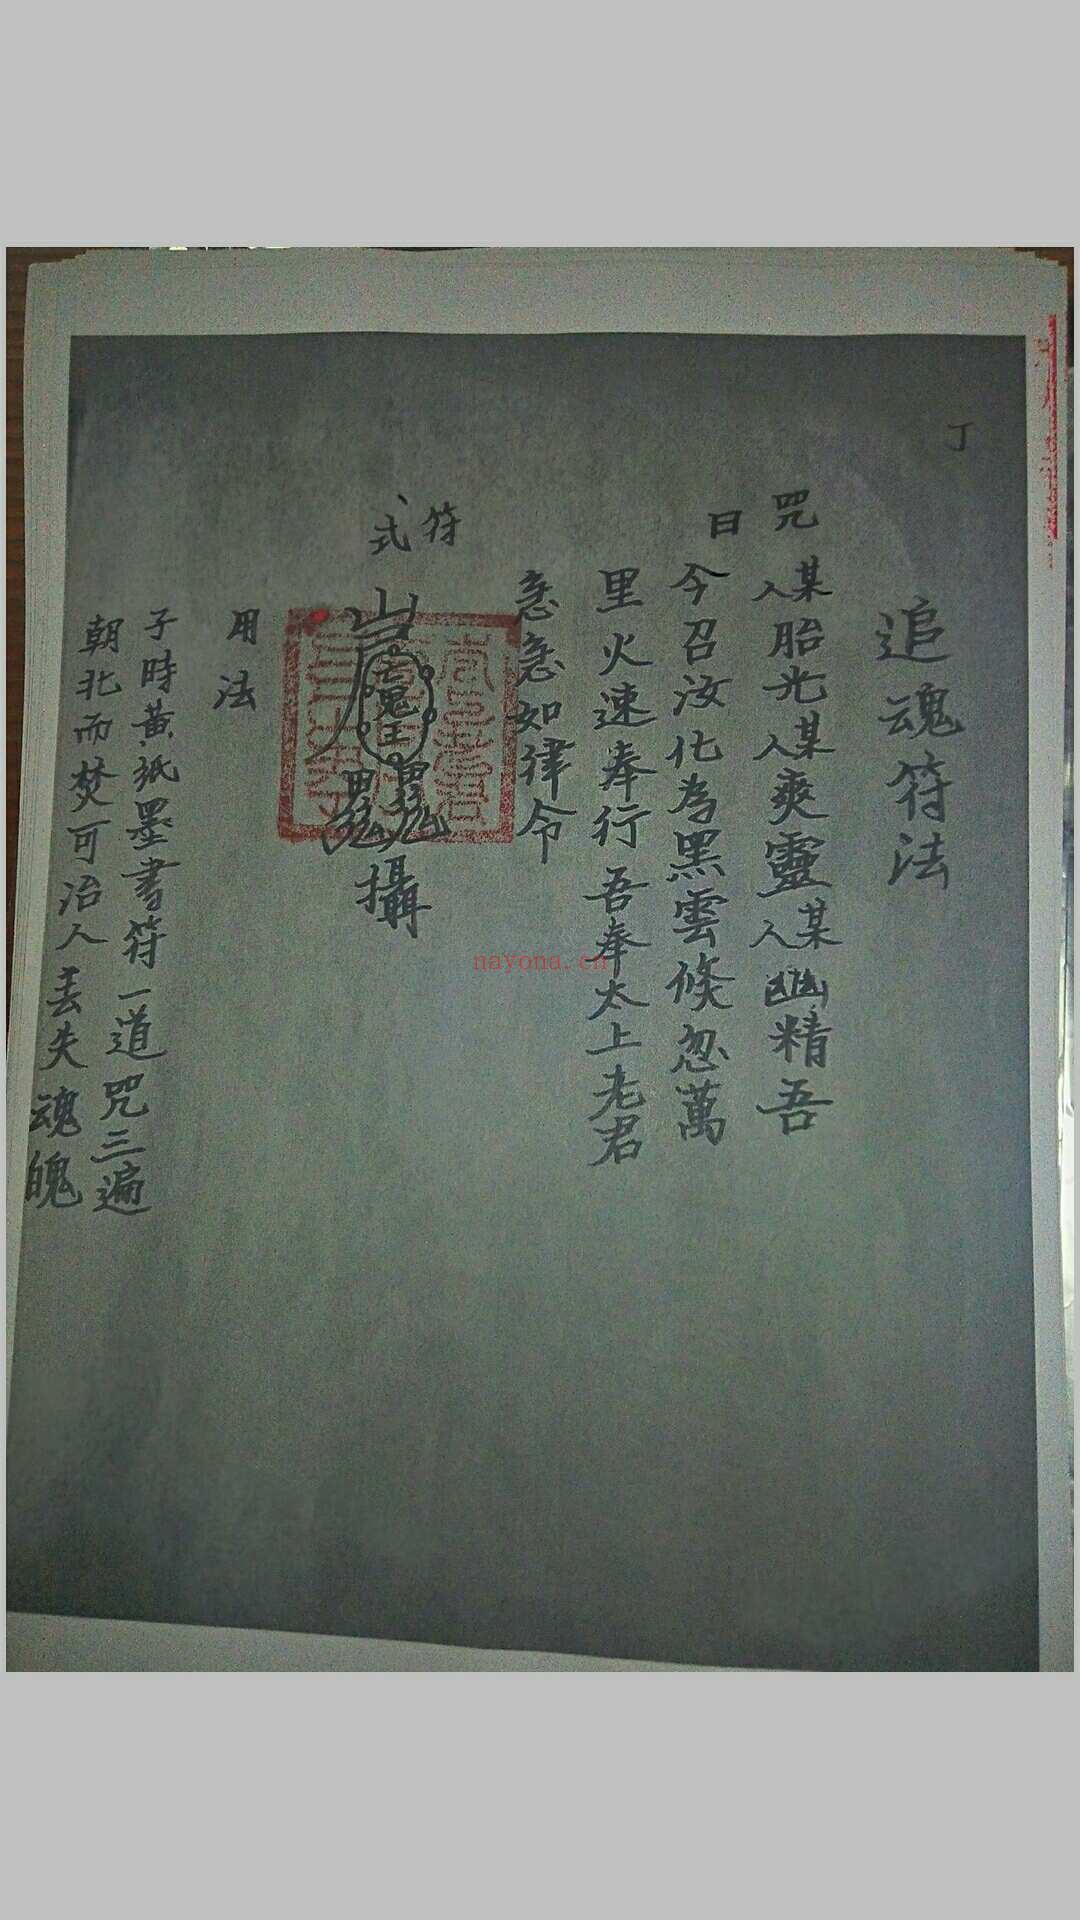 丁
追魂符法
咒曰
某人胎光某人爽靈某人幽精吾
今召汝化為黑雲倏忽萬
里火速奉行吾奉太上老君
急急如律令
符式
攝
用法
子時黃紙墨書符一道咒三遍
朝北而焚可治人丟失魂魄
nayona.cn